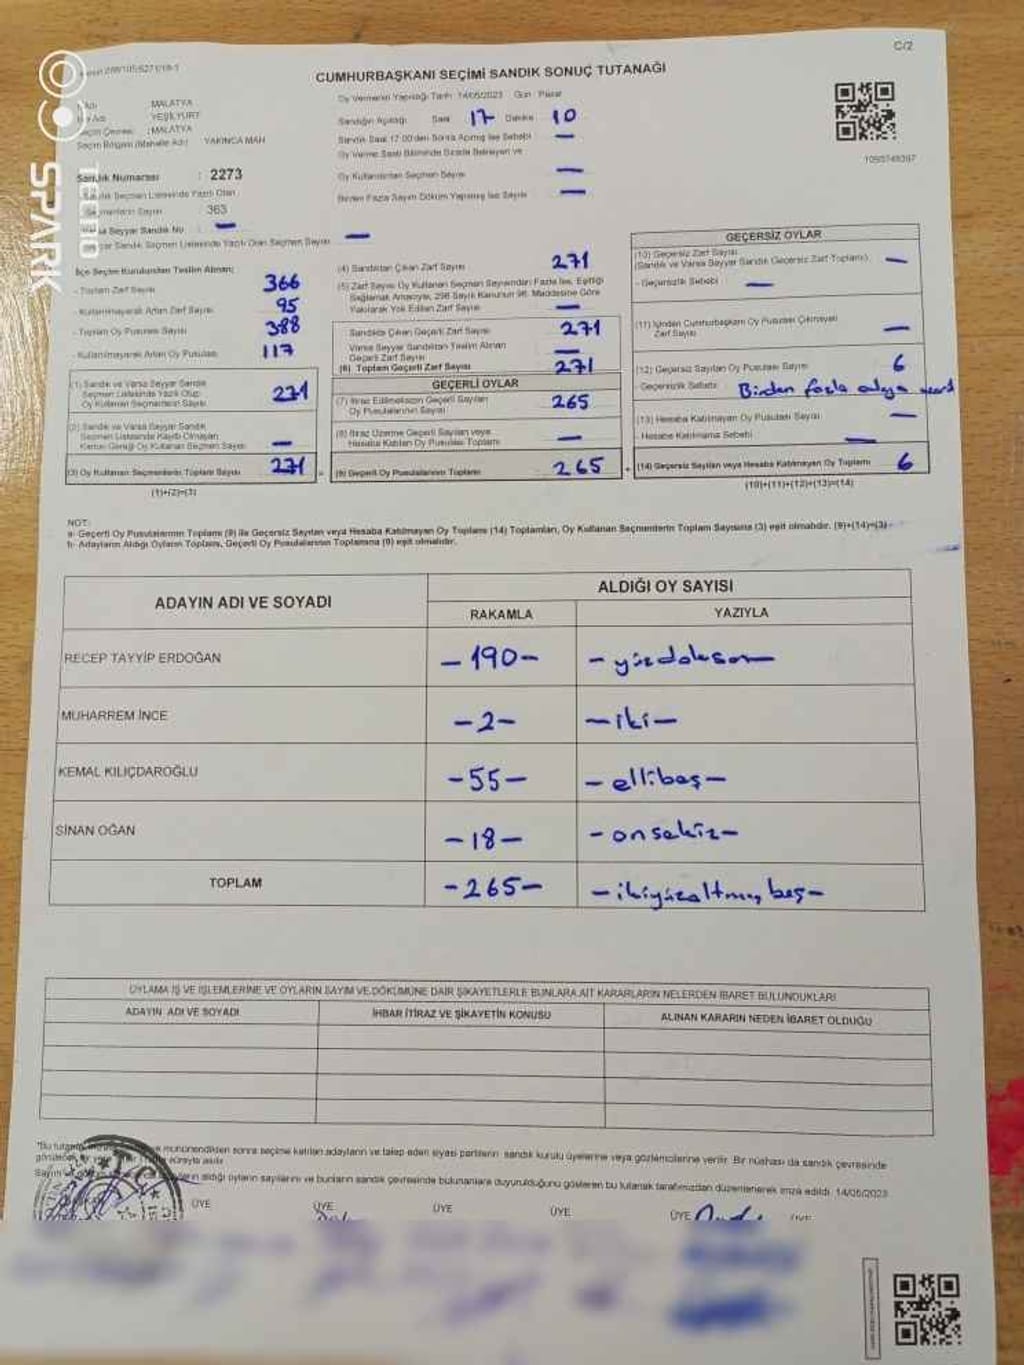 C/2
CUMHURBAŞKANI SEÇİMİ SANDIK SONUÇ TUTANAĞI
İl Adı : MALATYA
İlçe Adı : YEŞİLYURT
Seçim Çevresi : MALATYA
Seçim Bölgesi (Mahalle Adı) YAKINCA MAH
Sandık Numarası : 2273
Sandık Seçmen Listesinde Yazılı Olan
Seçmenlerin Sayısı : 363
Varsa Seyyar Sandık No : —
Seyyar Sandık Seçmen Listesinde Yazılı Olan Seçmen Sayısı —
Oy Vermenin Yapıldığı Tarih 14/05/2023 Gün : Pazar
Sandığın Açıldığı Saat 17 Dakika 10
Sandık Saat 17.00'den Sonra Açılmış İse Sebebi —
Oy Verme Saati Bitiminde Sırada Bekleyen ve
Oy Kullandırılan Seçmen Sayısı —
Birden Fazla Sayım Döküm Yapılmış İse Sayısı —
1095748397
İlçe Seçim Kurulundan Teslim Alınan;
- Toplam Zarf Sayısı 366
- Kullanılmayarak Artan Zarf Sayısı 95
- Toplam Oy Pusulası Sayısı 388
- Kullanılmayarak Artan Oy Pusulası 117
(1) Sandık ve Varsa Seyyar Sandık
Seçmen Listesinde Yazılı Olup
Oy Kullanan Seçmenlerin Sayısı 271
(2) Sandık ve Varsa Seyyar Sandık
Seçmen Listesinde Kayıtlı Olmayan
Kanun Gereği Oy Kullanan Seçmen Sayısı —
(3) Oy Kullanan Seçmenlerin Toplam Sayısı 271
(1)+(2)=(3)
(4) Sandıktan Çıkan Zarf Sayısı 271
(5) Zarf Sayısı Oy Kullanan Seçmen Sayısından Fazla İse, Eşitliği
Sağlamak Amacıyla, 298 Sayılı Kanunun 98. Maddesine Göre
Yakılarak Yok Edilen Zarf Sayısı —
Sandıkta Çıkan Geçerli Zarf Sayısı 271
Varsa Seyyar Sandıktan Teslim Alınan
Geçerli Zarf Sayısı —
(6) Toplam Geçerli Zarf Sayısı 271
GEÇERLİ OYLAR
(7) İtiraz Edilmeksizin Geçerli Sayılan
Oy Pusulalarının Sayısı 265
(8) İtiraz Üzerine Geçerli Sayılan veya
Hesaba Katılan Oy Pusulası Toplamı —
(9) Geçerli Oy Pusulalarının Toplamı 265
GEÇERSİZ OYLAR
(10) Geçersiz Zarf Sayısı
(Sandık ve Varsa Seyyar Sandık Geçersiz Zarf Toplamı) —
- Geçersizlik Sebebi : —
(11) İçinden Cumhurbaşkanı Oy Pusulası Çıkmayan
Zarf Sayısı —
(12) Geçersiz Sayılan Oy Pusulası Sayısı 6
- Geçersizlik Sebebi : Birden fazla adaya
(13) Hesaba Katılmayan Oy Pusulası Sayısı —
- Hesaba Katılmama Sebebi : —
(14) Geçersiz Sayılan veya Hesaba Katılmayan Oy Toplamı 6
(10)+(11)+(12)+(13)=(14)
NOT:
a- Geçerli Oy Pusulalarının Toplamı (9) ile Geçersiz Sayılan veya Hesaba Katılmayan Oy Toplamı (14) Toplamları, Oy Kullanan Seçmenlerin Toplam Sayısına (3) eşit olmalıdır. (9)+(14)=(3)
b- Adayların Aldığı Oyların Toplamı, Geçerli Oy Pusulalarının Toplamına (9) eşit olmalıdır.
ADAYIN ADI VE SOYADI
ALDIĞI OY SAYISI
RAKAMLA YAZIYLA
RECEP TAYYİP ERDOĞAN -190- -yüzdoksan-
MUHARREM İNCE -2- -iki-
KEMAL KILIÇDAROĞLU -55- -ellibeş-
SİNAN OĞAN -18- -onsekiz-
TOPLAM -265- -ikiyüzaltmışbeş-
OYLAMA İŞ VE İŞLEMLERİNE VE OYLARIN SAYIM VE DÖKÜMÜNE DAİR ŞİKAYETLERLE BUNLARA AİT KARARLARIN NELERDEN İBARET BULUNDUKLARI
ADAYIN ADI VE SOYADI İHBAR İTİRAZ VE ŞİKAYETİN KONUSU ALINAN KARARIN NEDEN İBARET OLDUĞU
mühürlendikten sonra seçime katılan adayların ve talep eden siyasi partilerin sandık kurulu üyelerine veya gözlemcilerine verilir. Bir nüshası da sandık çevresinde
aldığı oyların sayılarını ve bunların sandık çevresinde bulunanlara duyurulduğunu gösteren bu tutanak tarafımızdan düzenlenerek imza edildi. 14/05/2023
ÜYE ÜYE ÜYE ÜYE ÜYE ÜYE
TECNO
SPARK